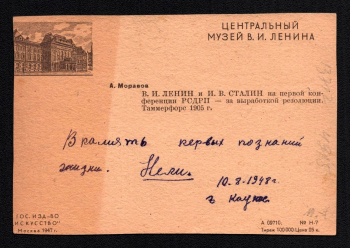 ЦЕНТРАЛЬНЫЙ
МУЗЕЙ В. И. ЛЕНИНА
А. Моравов
В. И. ЛЕНИН и И. В. СТАЛИН на первой кон-
ференции РСДРП — за выработкой резолюции.
Таммерфорс 1905 г.
В память первых познаний
жизни. Нели.
10.8-1948 г.
г. Каунас
ГОС. ИЗД-ВО
„ИСКУССТВО"
Москва 1947 г.
А 02710. ПФ Н-7
Тираж 100 000 Цена 25 к.